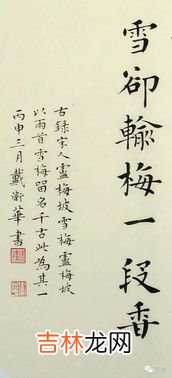 雪卻輸梅一段香
右錄宋人盧梅坡雪梅盧梅坡
以兩首雪梅留名千古此為其一
丙申三月戴衡華書
吉林龙网